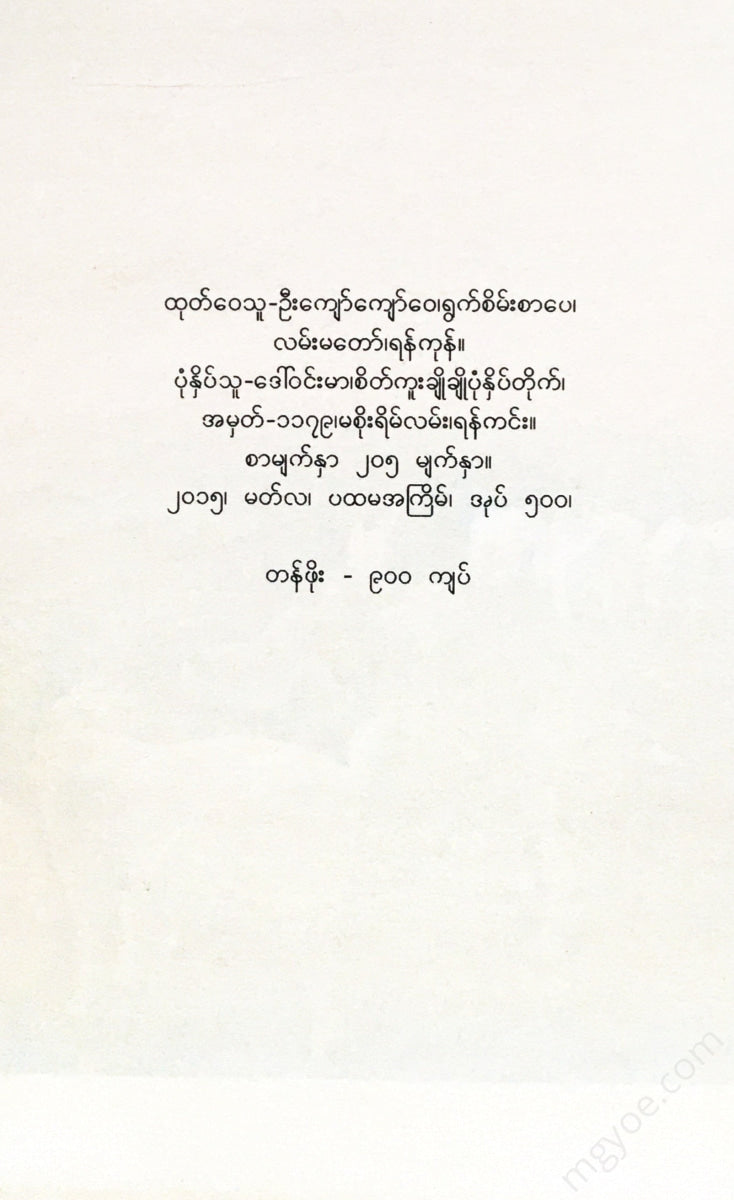 ထုတ်ဝေသူ-ဦးကျော်ကျော်ဝေ၊ရွက်စိမ်းစာပေ၊
လမ်းမတော်၊ရန်ကုန်။
ပုံနှိပ်သူ-ဒေါ်ဝင်းမာ၊စိတ်ကူးချိုချိုပုံနှိပ်တိုက်၊
အမှတ်-၁၁၇၉၊မစိုးရိမ်လမ်း၊ရန်ကင်း။
စာမျက်နှာ ၂၀၅ မျက်နှာ။
၂၀၁၅၊ မတ်လ၊ ပထမအကြိမ်၊ အုပ် ၅၀၀၊
တန်ဖိုး - ၉၀၀ ကျပ်
mgyoe.com